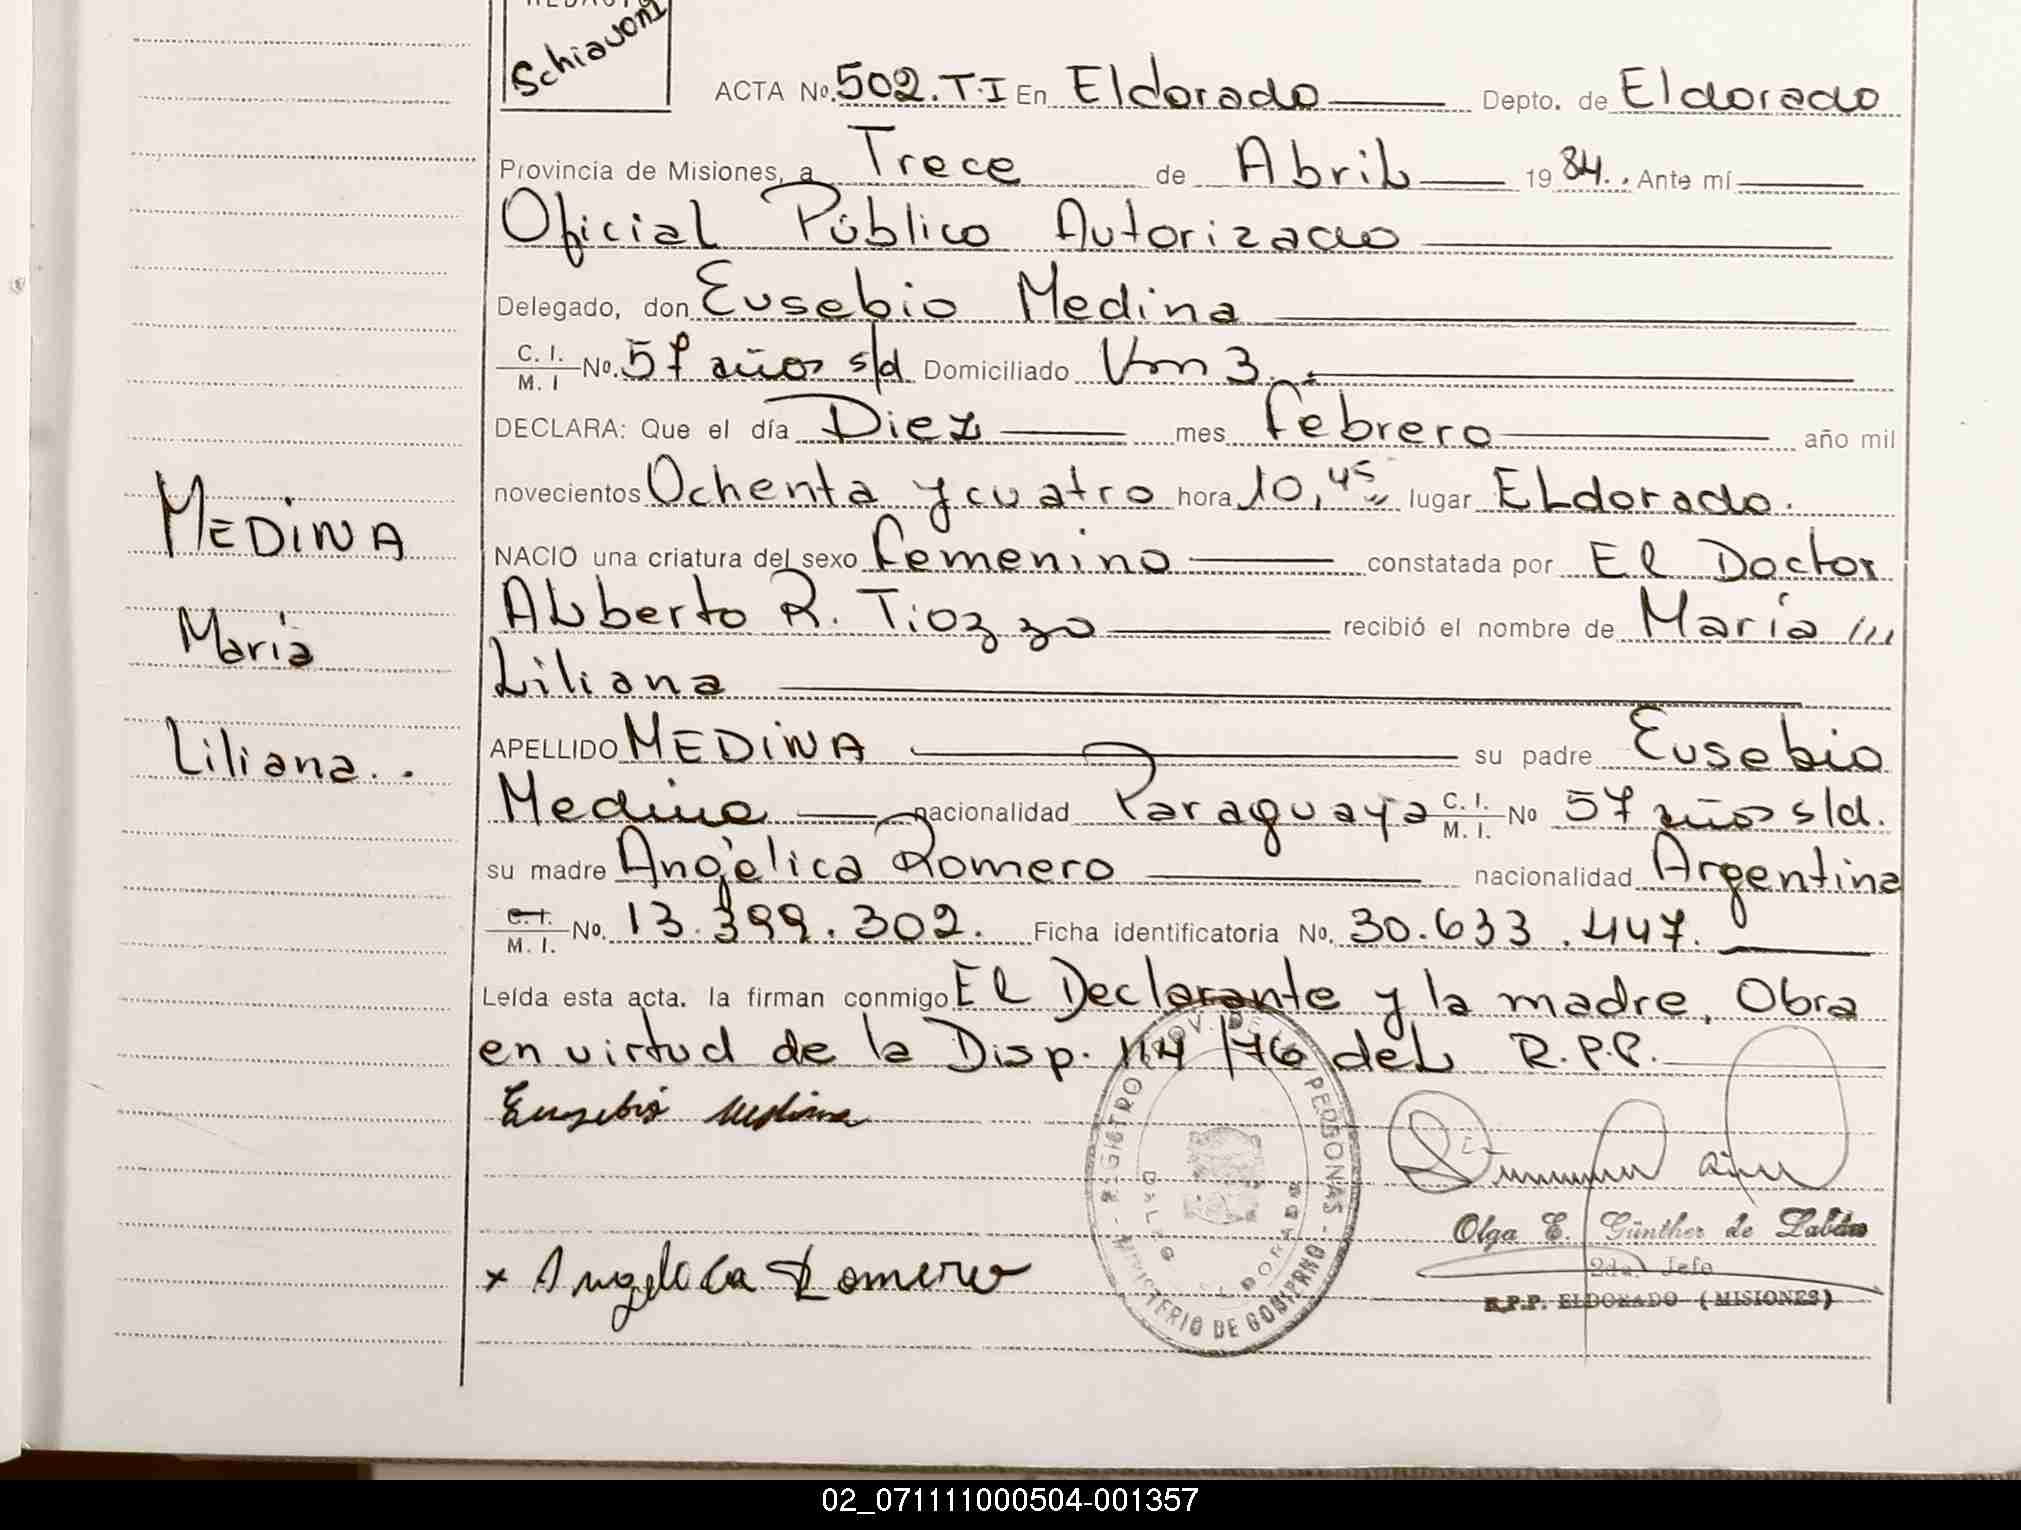 Schiavoni
ACTA No. 502. T.I En Eldorado Depto. de Eldorado
Provincia de Misiones, a Trece de Abril 1984. Ante mí
Oficial Público Autorizado
Delegado, don Eusebio Medina
C. I. M. I No. 57 años s/d Domiciliado Km 3.
DECLARA: Que el día Diez mes Febrero año mil
novecientos Ochenta y cuatro hora 10,45 lugar ELdorado.
NACIO una criatura del sexo femenino constatada por El Doctor
ALberto R. Tiozzo recibió el nombre de María
Liliana
MEDINA
María
Liliana..
APELLIDO MEDINA su padre Eusebio
Medina nacionalidad Paraguaya C. I. M. I. No 57 años s/d.
su madre Angélica Romero nacionalidad Argentina
C. I. M. I. No. 13.399.302. Ficha identificatoria No. 30.633.447.
Leída esta acta. la firman conmigo El Declarante y la madre. Obra
en virtud de la Disp. 114/76 del R.P.P.
Eusebio Medina
x Angelica Romero
REGISTRO PROV. DE LAS PERSONAS - MINISTERIO DE GOBIERNO -
ELDORADO
Olga E. Günther de
2da. Jefe
R.P.P. ELDORADO (MISIONES)
02_071111000504-001357